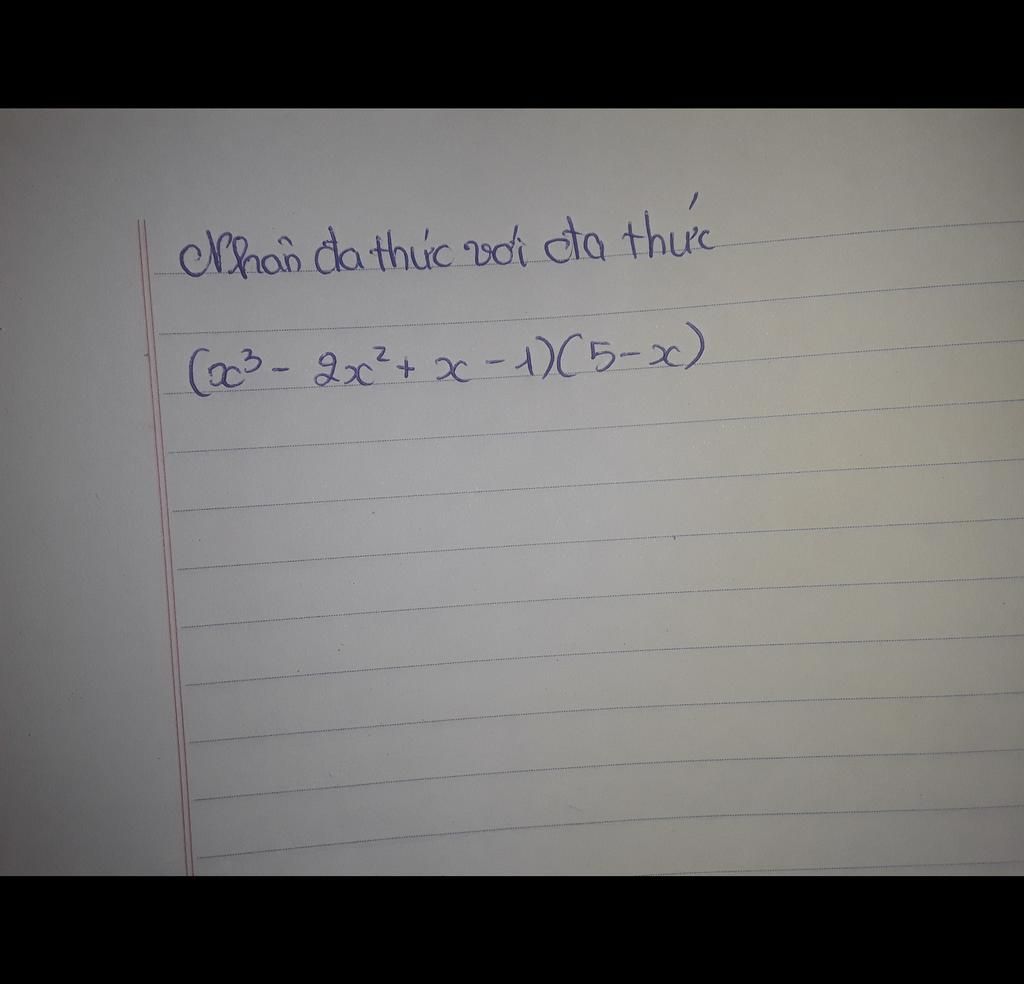 Nhân đa thức với đa thức
(x³ - 2x² + x - 1)(5 - x)